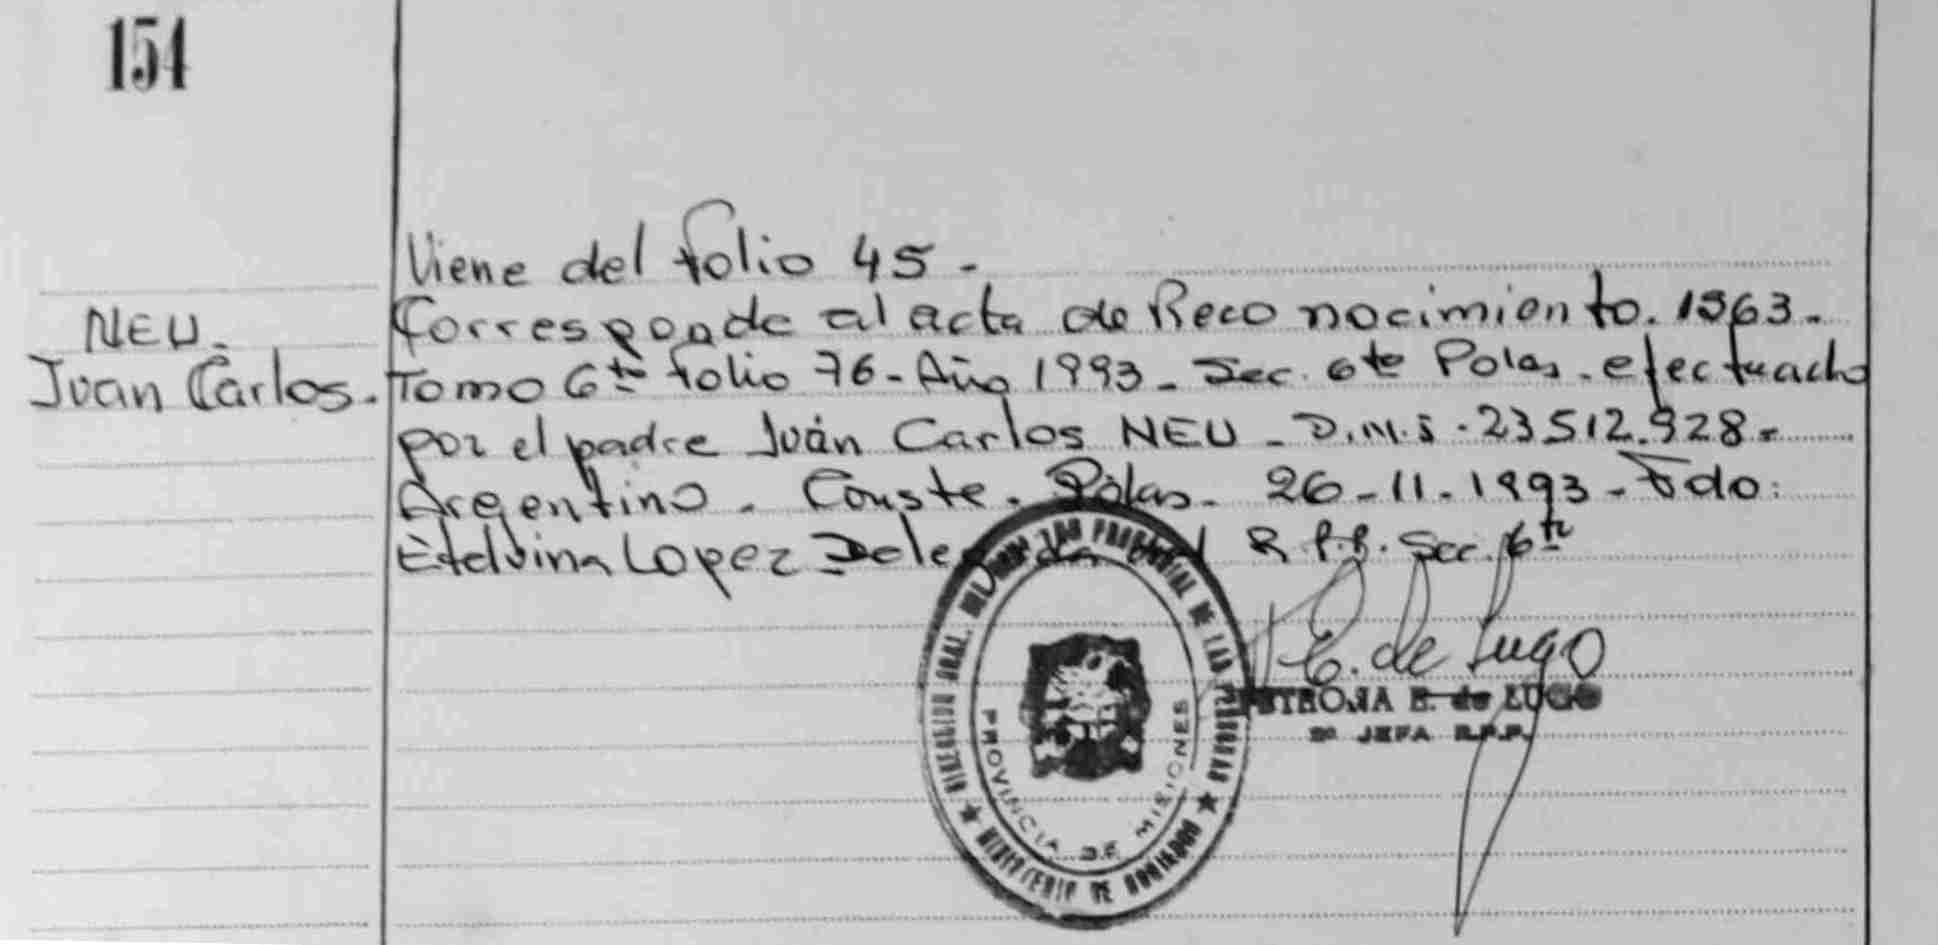 154
Viene del folio 45 -
NEU.
Juan Carlos.
Corresponde al acta de Reconocimiento. 1563.
Tomo 6to folio 76 - Año 1993 - Sec. 6te Pdas. efectuado
por el padre Juán Carlos NEU - D.N.I. 23512.928 -
Argentino. Conste. Pdas. 26-11-1993 - Fdo:
Etelvina Lopez Delegada del R.P.P. Sec. 6te
E. de Lugo
PETRONA E. de LUGO
2º JEFA R.P.P.
DIRECCION GRAL. DEL REGISTRO PROVINCIAL DE LAS PERSONAS
PROVINCIA DE MISIONES
MINISTERIO DE GOBIERNO